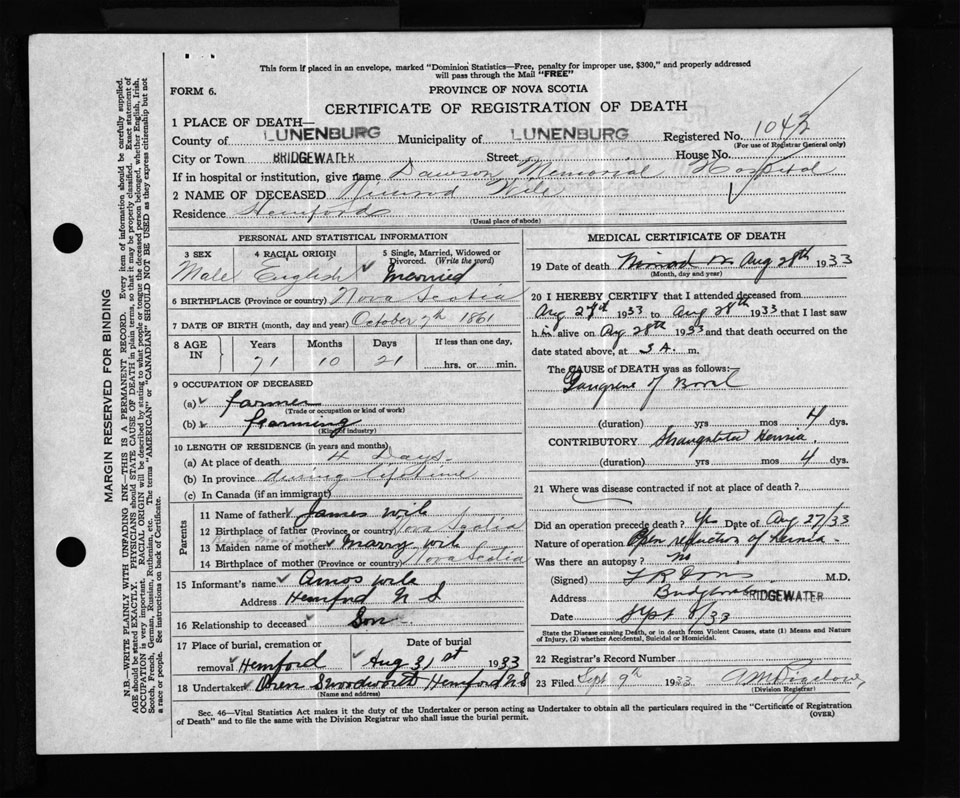 This form if placed in an envelope, marked "Dominion Statistics—Free, penalty for improper use, $300," and properly addressed
will pass through the Mail "FREE"
FORM 6. PROVINCE OF NOVA SCOTIA
CERTIFICATE OF REGISTRATION OF DEATH
1 PLACE OF DEATH—
County of LUNENBURG Municipality of LUNENBURG Registered No. 1043
(For use of Registrar General only)
City or Town BRIDGEWATER Street House No.
If in hospital or institution, give name Dawson Memorial Hospital
2 NAME OF DECEASED Wile
Residence Hemford
(Usual place of abode)
PERSONAL AND STATISTICAL INFORMATION
3 SEX 4 RACIAL ORIGIN 5 Single, Married, Widowed or
Divorced. (Write the word)
Male English Married
6 BIRTHPLACE (Province or country) Nova Scotia
7 DATE OF BIRTH (month, day and year) October 7th 1861
8 AGE IN Years Months Days If less than one day,
71 10 21 hrs. or min.
9 OCCUPATION OF DECEASED
(a) farmer
(Trade or occupation or kind of work)
(b) farming
(Kind of industry)
10 LENGTH OF RESIDENCE (in years and months)
(a) At place of death 4 Days
(b) In province during lifetime
(c) In Canada (if an immigrant)
Parents
11 Name of father James Wile
12 Birthplace of father (Province or country) Nova Scotia
13 Maiden name of mother Marry Wile
14 Birthplace of mother (Province or country) Nova Scotia
15 Informant's name Amos Wile
Address Hemford N S
16 Relationship to deceased Son
17 Place of burial, cremation or Date of burial
removal Hemford Aug 31st 1933
18 Undertaker Oren Hemford N S
(Name and address)
MEDICAL CERTIFICATE OF DEATH
19 Date of death Aug 28th 1933
(Month, day and year)
20 I HEREBY CERTIFY that I attended deceased from
Aug 27th 1933 to Aug 28th 1933 that I last saw
him alive on Aug 28th 1933 and that death occurred on
date stated above, at 3 A. m.
The CAUSE of DEATH was as follows:—
Gangrene of Bowel
(duration) yrs mos 4 dys.
CONTRIBUTORY Hernia
(duration) yrs mos 4 dys.
21 Where was disease contracted if not at place of death?
Did an operation precede death? Yes Date of Aug 27/33
Nature of operation Open reduction of Hernia
Was there an autopsy? No
(Signed) M.D.
Address BRIDGEWATER
Date Sept /33
State the Disease causing Death, or in death from Violent Causes, state (1) Means and Nature
of Injury, (2) whether Accidental, Suicidal or Homicidal.
22 Registrar's Record Number
23 Filed Sept 9th 1933
(Division Registrar)
Sec. 46—Vital Statistics Act makes it the duty of the Undertaker or person acting as Undertaker to obtain all the particulars required in the "Certificate of Registration
of Death" and to file the same with the Division Registrar who shall issue the burial permit. (OVER)
MARGIN RESERVED FOR BINDING
N.B.—WRITE PLAINLY WITH UNFADING INK—THIS IS A PERMANENT RECORD. Every item of information should be carefully supplied.
AGE should be stated EXACTLY. PHYSICIANS should STATE CAUSE OF DEATH in plain terms, so that it may be properly classified. Exact statement of
OCCUPATION is very important. RACIAL ORIGIN will be described by stating to what people or tongue the deceased person belonged, whether English, Irish,
Scotch, French, German, Russian, Ruthenian, etc. The terms "AMERICAN" or "CANADIAN" SHOULD NOT BE USED as they express citizenship but not
a race or people. See instructions on back of Certificate.